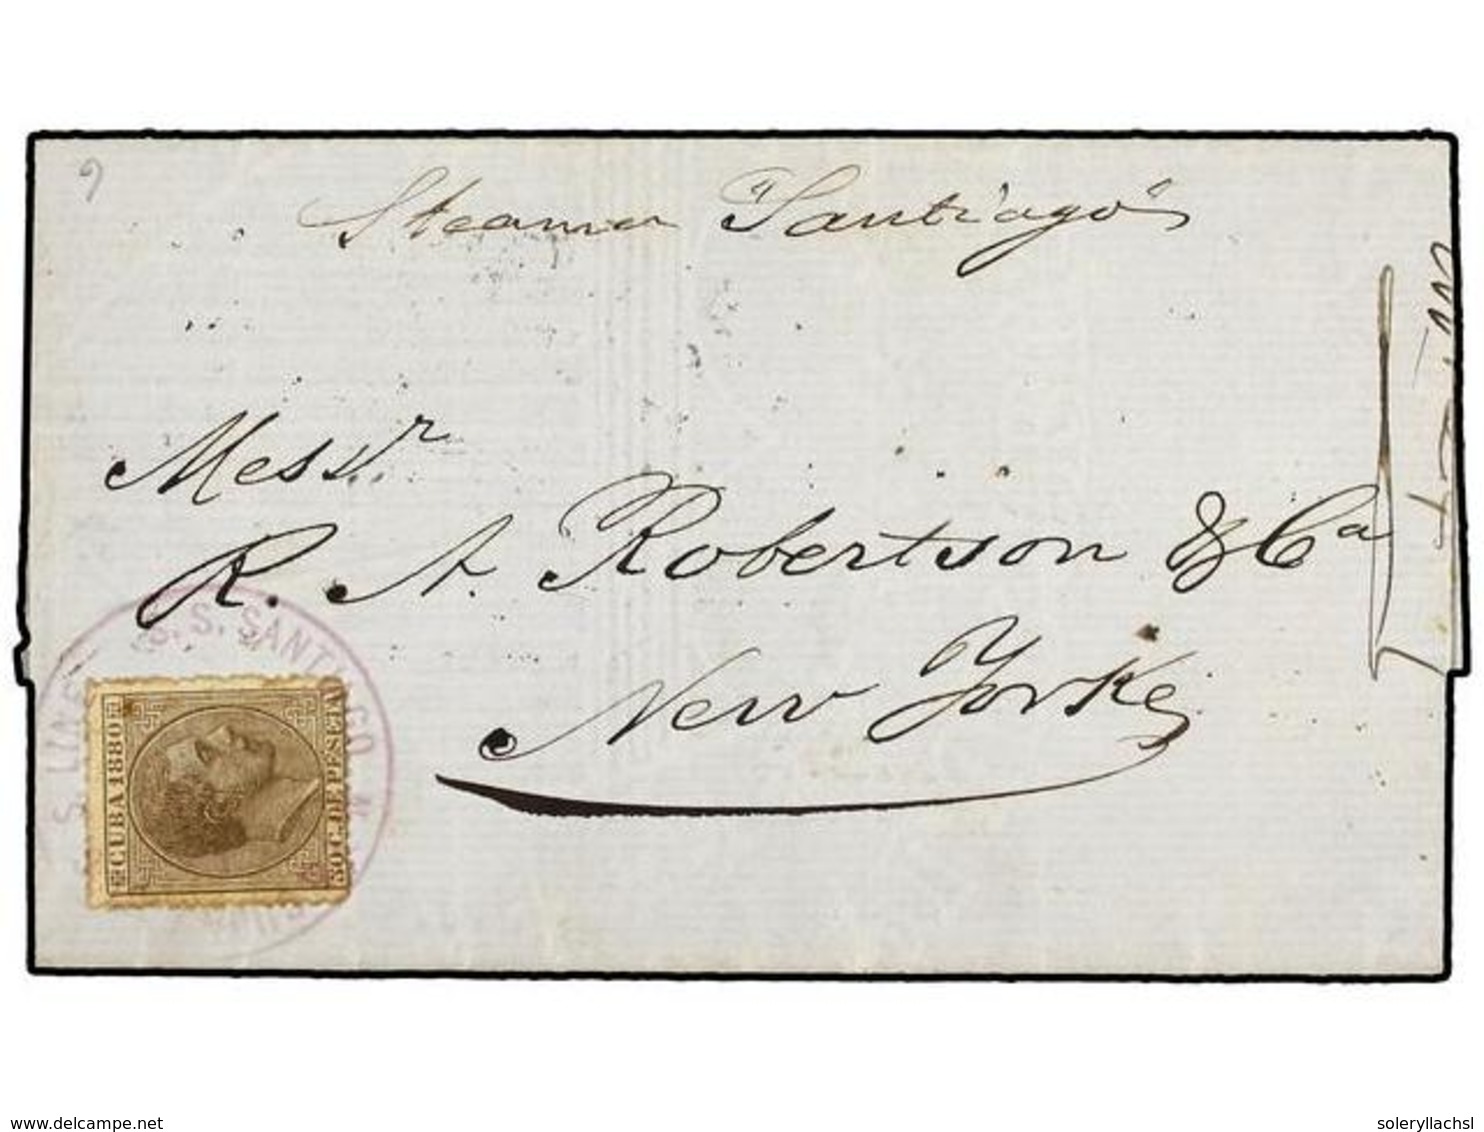 9
Steamer "Santiago"
Messr
R. A. Robertson & Ca
New Yorke
S.S. SANTIAGO
LINE
CUBA 1880
50 C. DE PESETA
delcampe.net
soleryllachsl